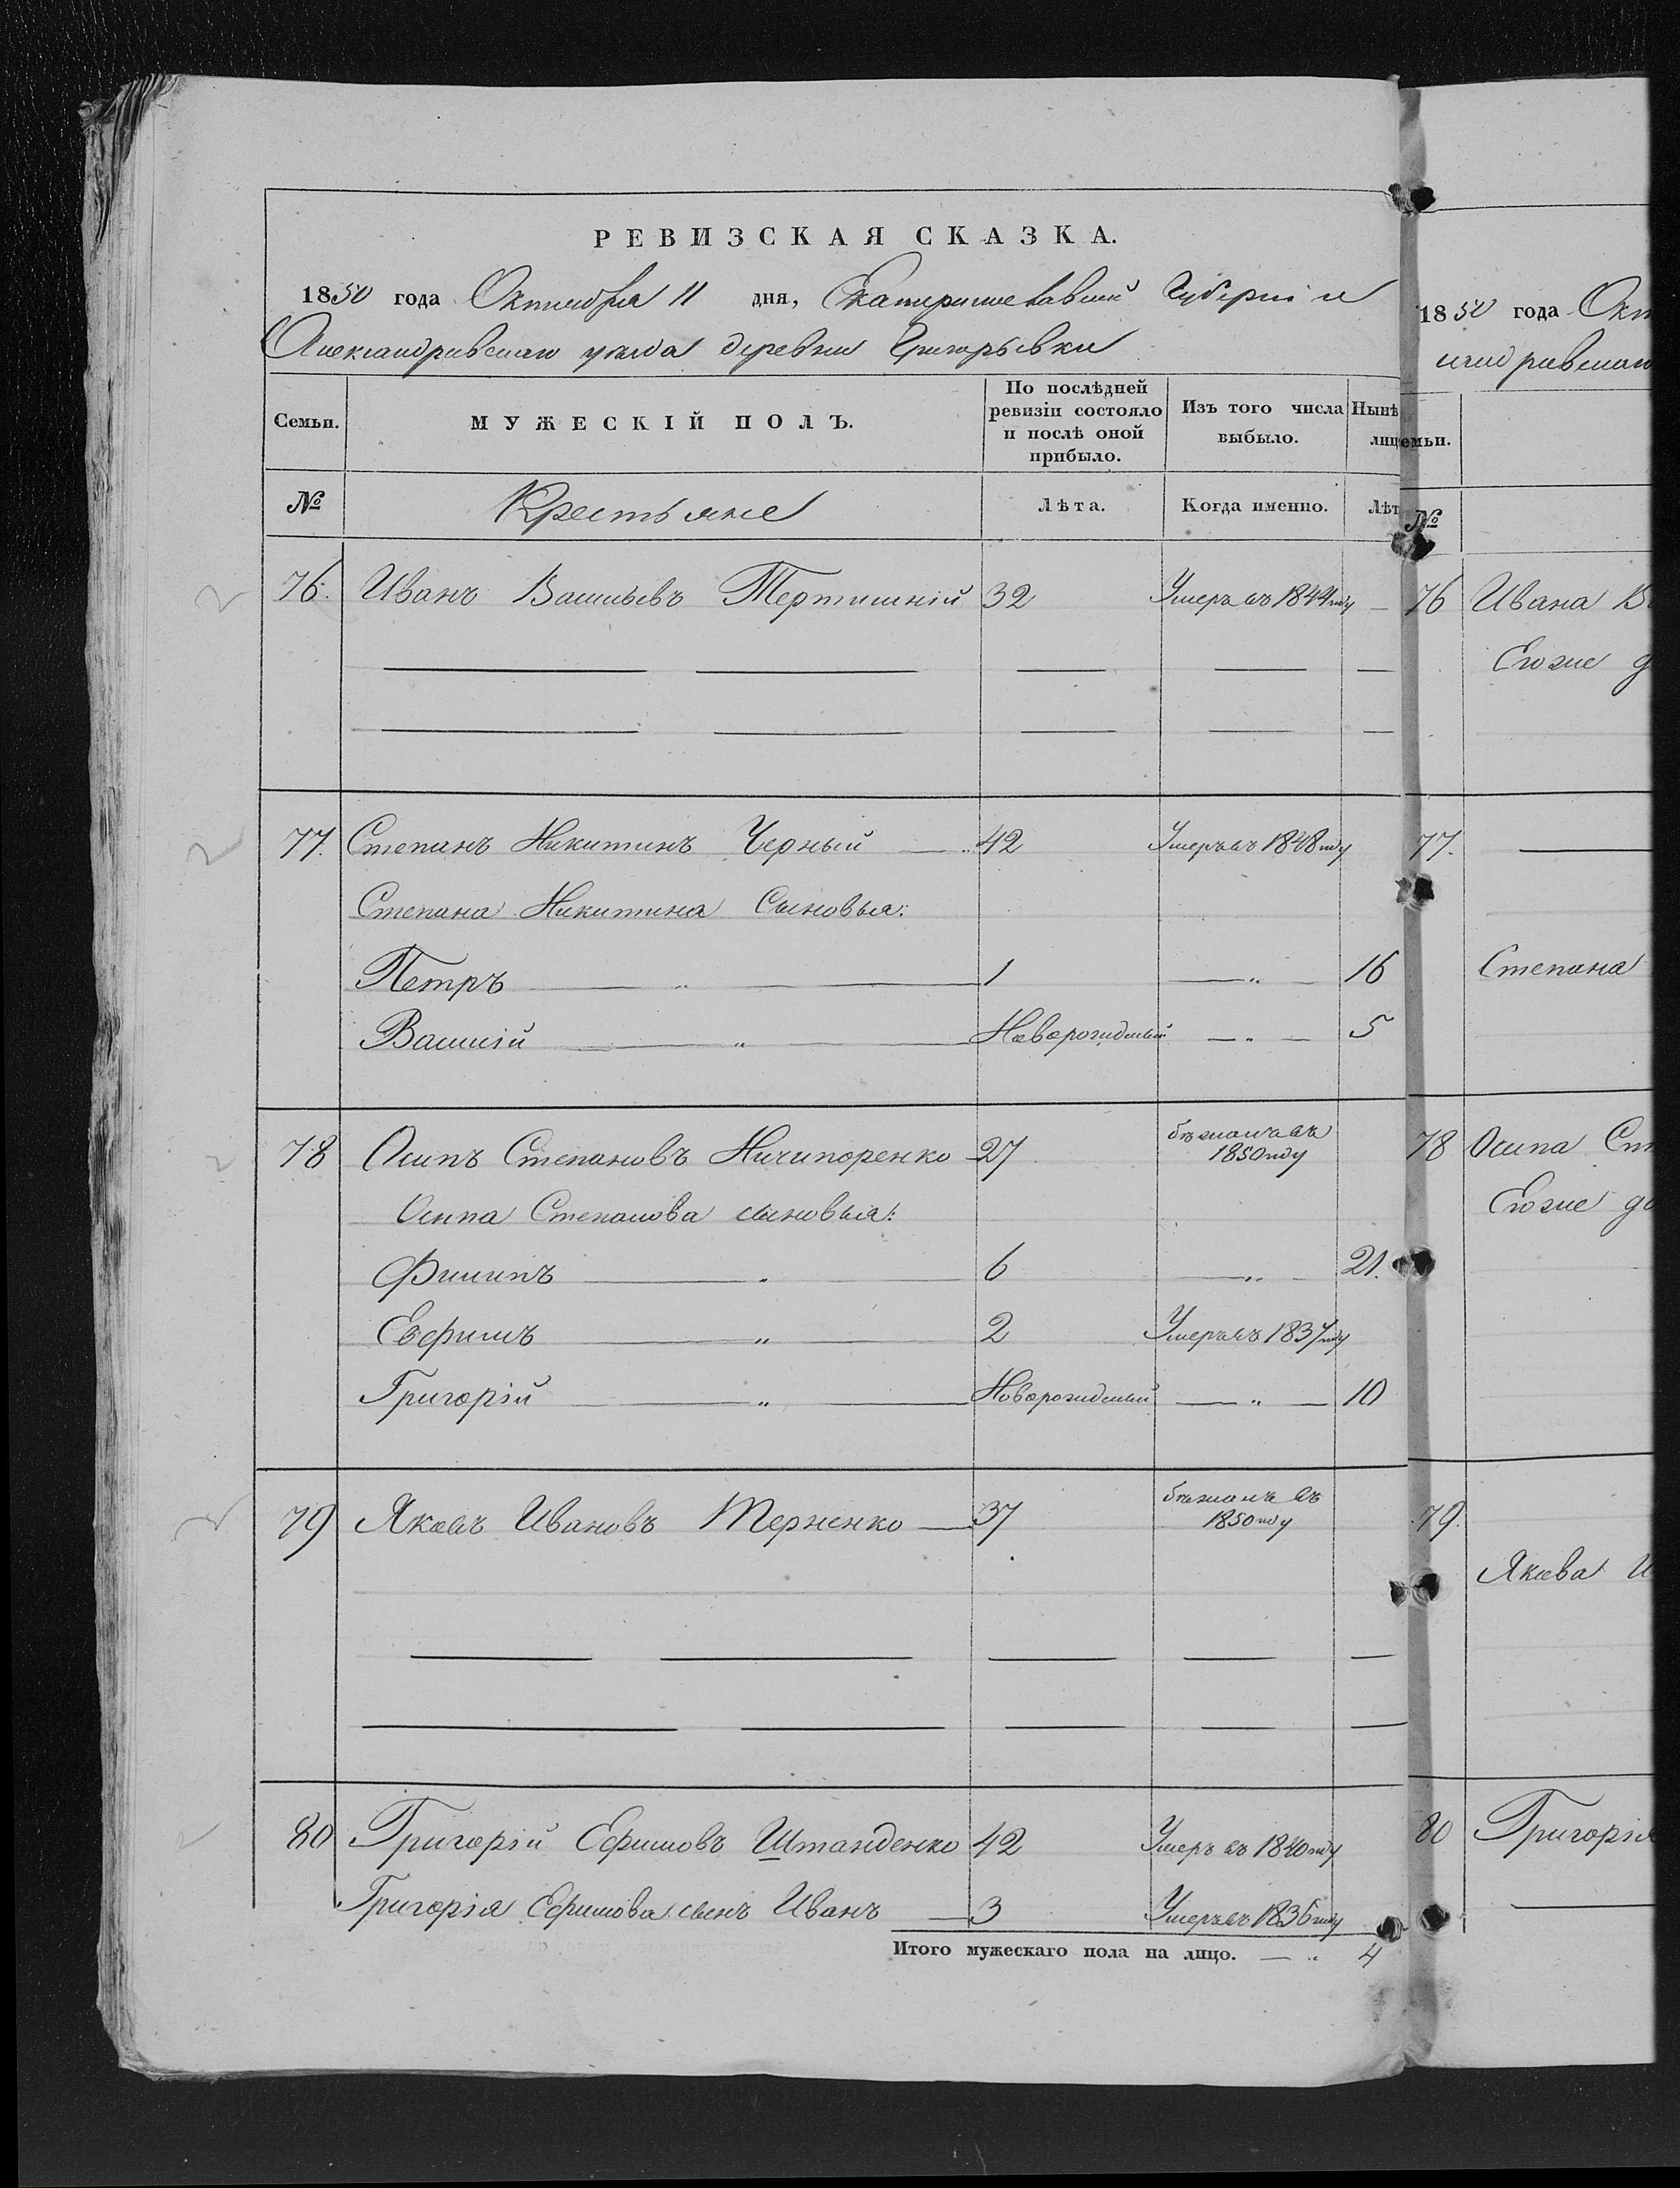 РЕВИЗСКАЯ СКАЗКА.
1850 года Октября 11 дня, Екатеринославской Губерніи
Александровскаго уѣзда деревни Григорьевки
Семьи. МУЖЕСКІЙ ПОЛЪ. По послѣдней ревизіи состояло и послѣ оной прибыло. Изъ того числа выбыло. Нынѣ лиц
№ Крестьяне Лѣта. Когда именно. Лѣт
76. Иванъ Васильевъ Тертишній 32 Умеръ въ 1844 году —
77. Степанъ Никитинъ Черный 42 Умеръ въ 1848 году
Степана Никитина Сыновья:
Петръ — " — 1 — " — 16
Василій — " — Новорожденый — " — 5
78 Осипъ Степановъ Ничипоренко 27 бѣжалъ въ 1850 году
Осипа Степанова сыновья:
Филипъ — " — 6 — " — 21.
Евфимъ — " — 2 Умеръ въ 1837 году
Григорій — " — Новорожденый — " — 10
79 Яковъ Ивановъ Терненко — 37 бѣжалъ въ 1850 году
80 Григорій Ефимовъ Штанденко 42 Умеръ въ 1840 году
Григорія Ефимова сынъ Иванъ — 3 Умеръ въ 1836 году
Итого мужескаго пола на лицо. — " 4
1850 года Окт
емьи.
№
76 Ивана В
Егоже д
77.
Степана
78 Осипа Ст
Егоже до
79.
Якова И
80 Григорія